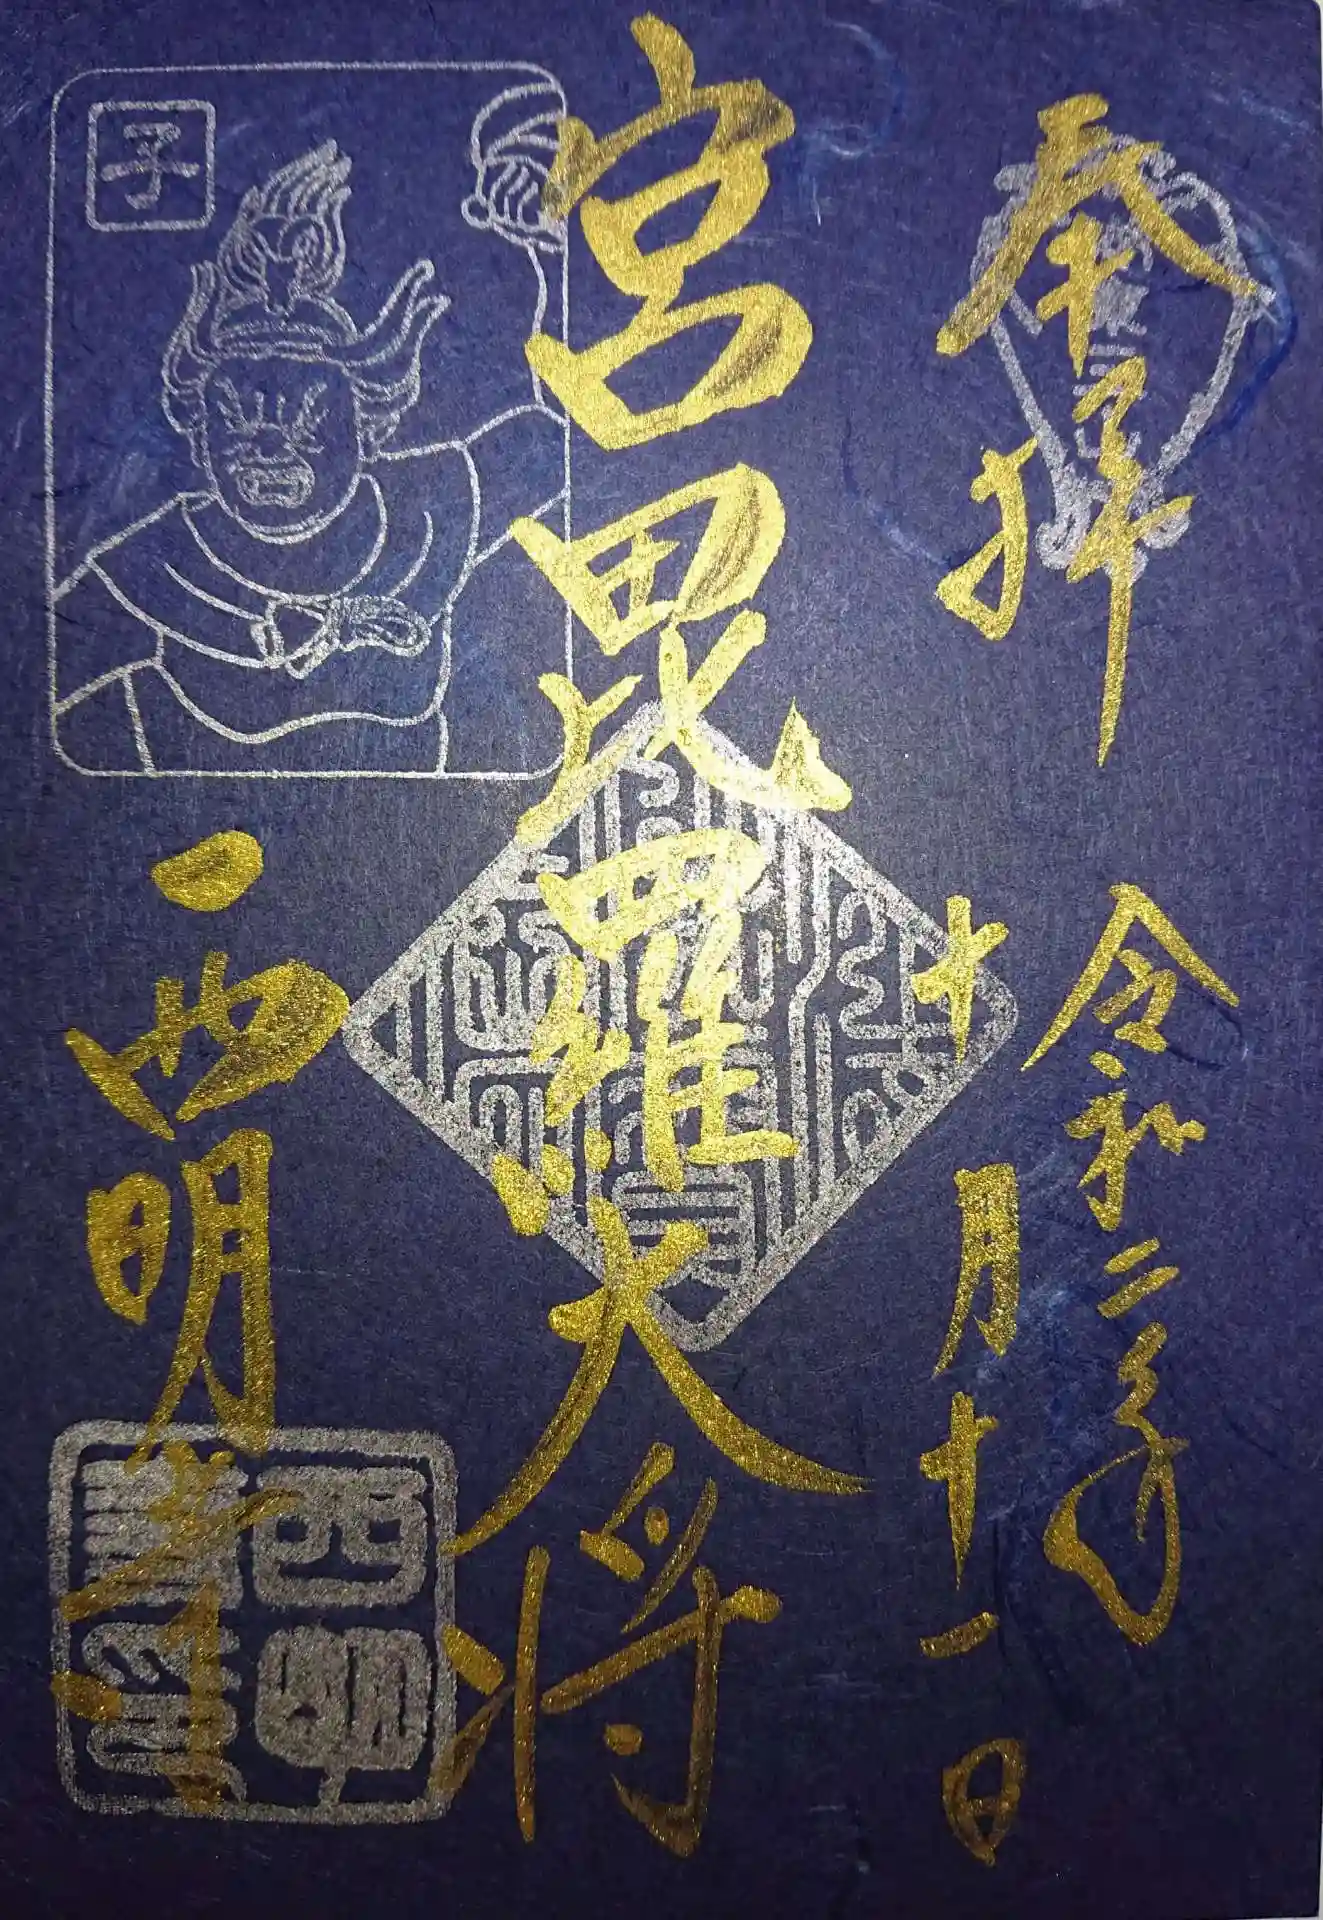 奉拝
令和二年
十月十一日
宮毘羅大将
西明寺
子